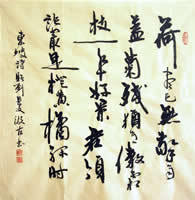 荷尽已无擎雨
盖菊残犹有傲霜
枝一年好景君须
记最是橙黄橘绿时
东坡诗赠刘景文